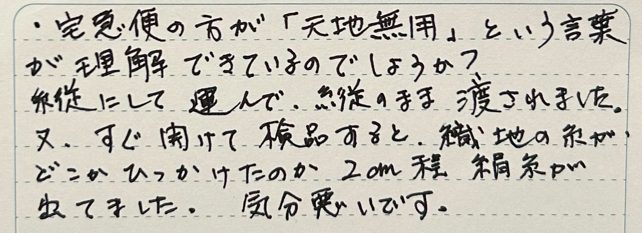 ・宅急便の方が「天地無用」という言葉
が理解できているのでしょうか?
縦にして運んで、縦のまま渡されました。
又、すぐ開けて検品すると、織地の糸が、
どこかひっかけたのか 2cm程 絹糸が
出てました。 気分悪いです。